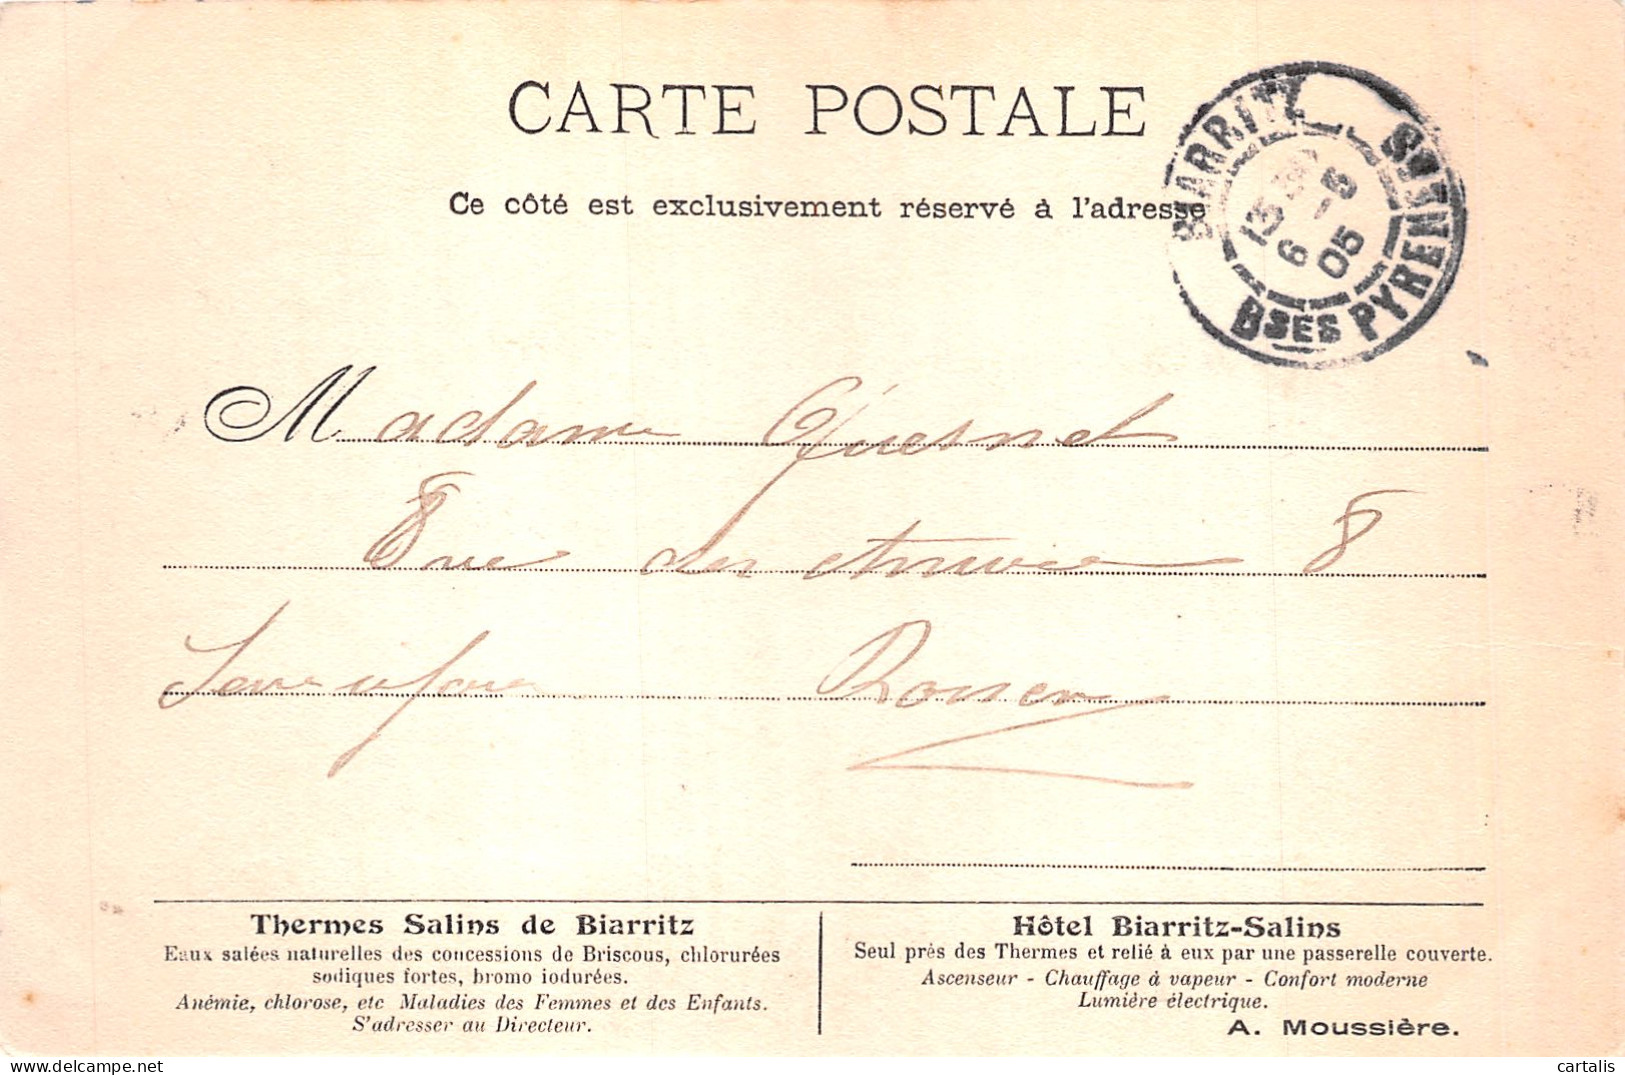 CARTE POSTALE
Ce côté est exclusivement réservé à l'adresse
BIARRITZ
6 -5
05
BSES PYRENÉES
Madame Quesnel
rue des 8
Rouen
Thermes Salins de Biarritz
Eaux salées naturelles des concessions de Briscous, chlorurées
sodiques fortes, bromo iodurées.
Anémie, chlorose, etc Maladies des Femmes et des Enfants.
S'adresser au Directeur.
Hôtel Biarritz-Salins
Seul près des Thermes et relié à eux par une passerelle couverte.
Ascenseur - Chauffage à vapeur - Confort moderne
Lumière électrique.
A. Moussière.
cartalis